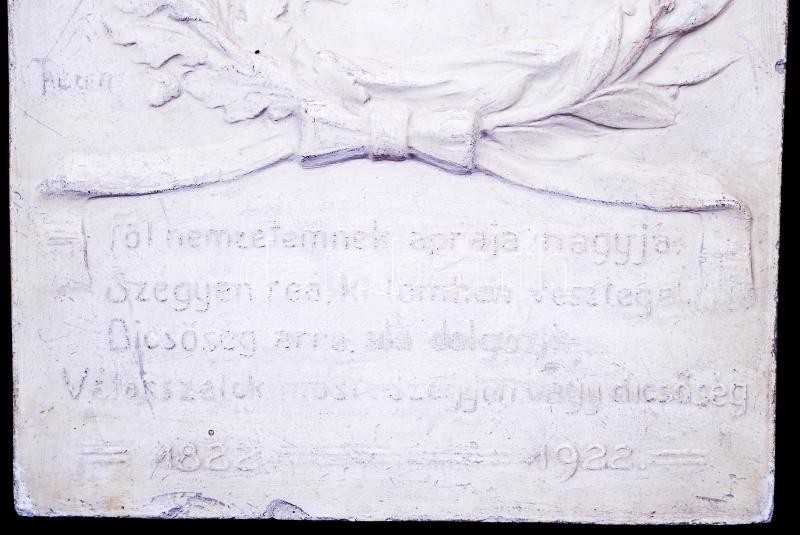 Föl nemzetemnek apraja nagyja.
Szégyen reá, ki lomhán veszteg ül,
Dicsőség arra, aki dolgozik
Válasszatok most: szégyen vagy dicsőség
1822 1922.